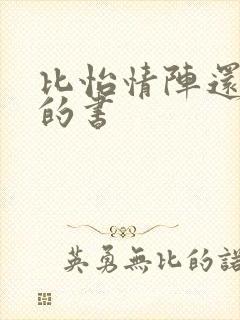 比怡情陣還
的書
英勇無比的諾